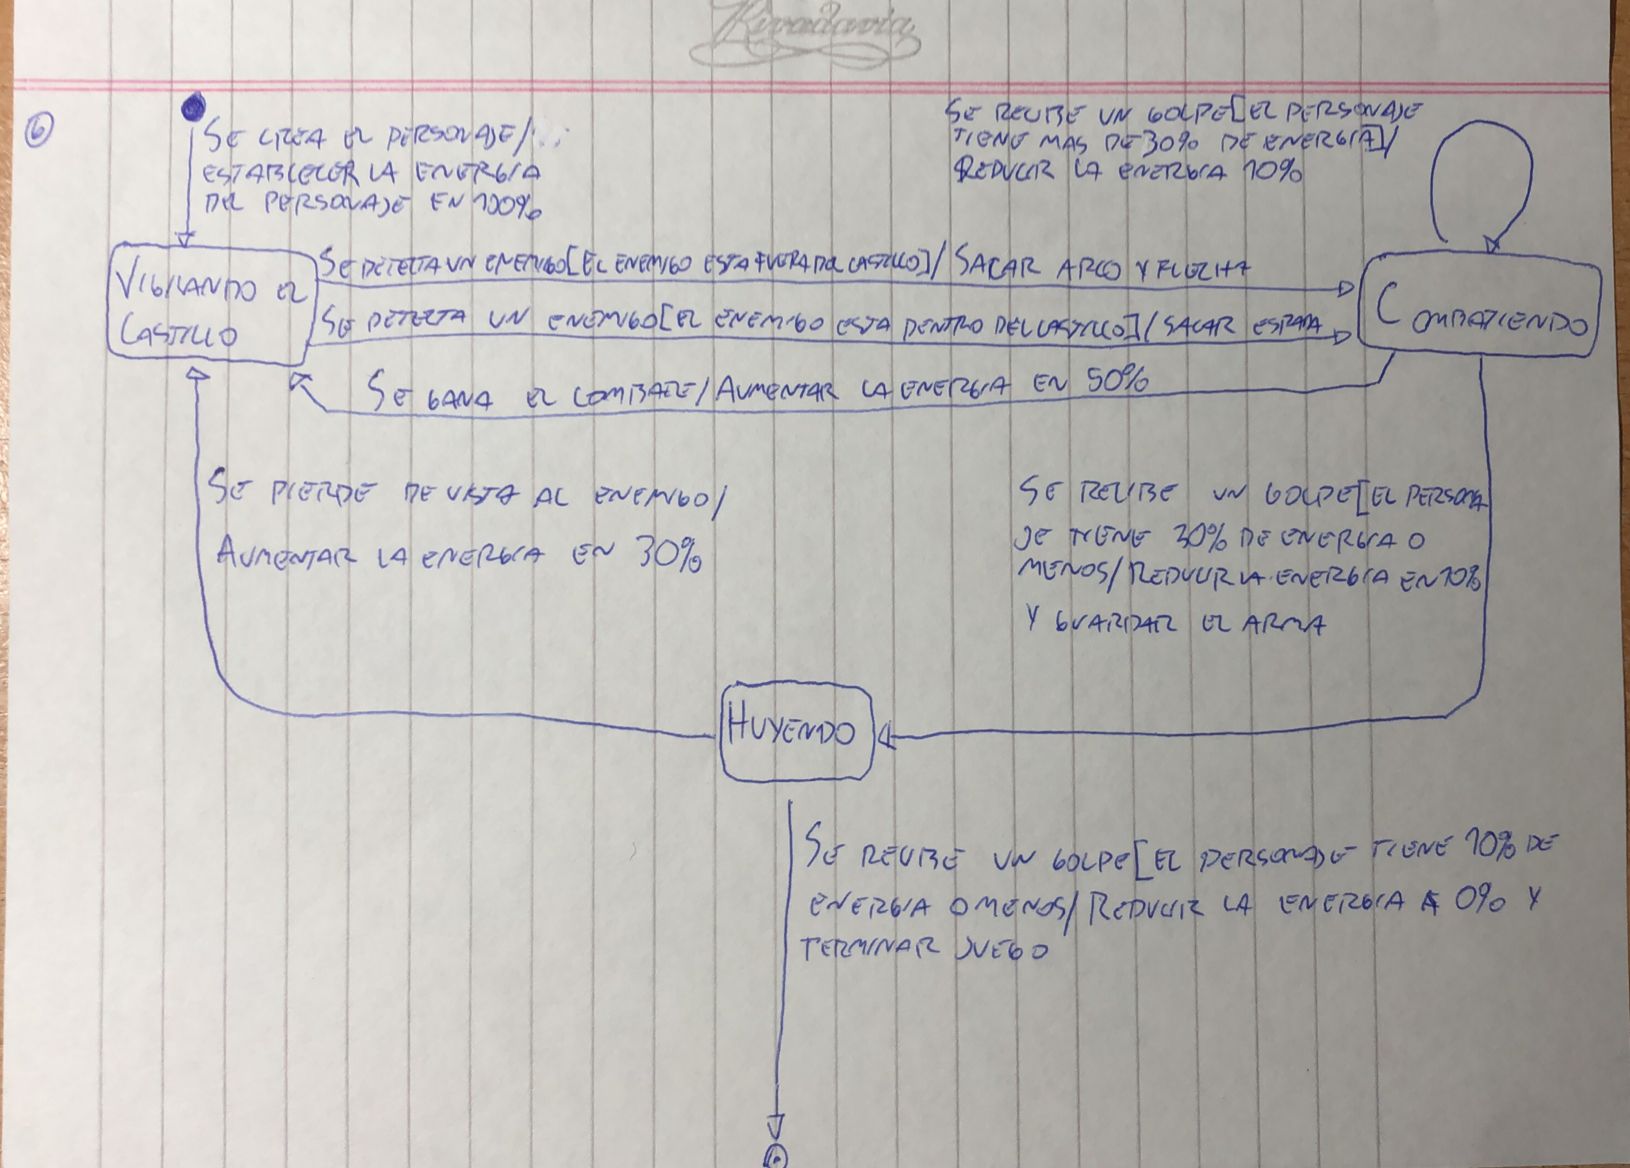 Rivadavia
6
SE CREA EL PERSONAJE/
ESTABLECER LA ENERGIA
DEL PERSONAJE EN 100%
SE RECIBE UN GOLPE[EL PERSONAJE
TIENE MAS DE 30% DE ENERGIA]/
REDUCIR LA ENERGIA 10%
VIGILANDO EL
CASTILLO
SE DETECTA UN ENEMIGO[EL ENEMIGO ESTA FUERA DEL CASTILLO]/SACAR ARCO Y FLECHA
SE DETECTA UN ENEMIGO[EL ENEMIGO ESTA DENTRO DEL CASTILLO]/SACAR ESPADA
COMBATIENDO
SE GANA EL COMBATE/AUMENTAR LA ENERGIA EN 50%
SE PIERDE DE VISTA AL ENEMIGO/
AUMENTAR LA ENERGIA EN 30%
SE RECIBE UN GOLPE[EL PERSONA
JE TIENE 30% DE ENERGIA O
MENOS/REDUCIR LA ENERGIA EN 10%
Y GUARDAR EL ARMA
HUYENDO
SE RECIBE UN GOLPE[EL PERSONAJE TIENE 10% DE
ENERGIA O MENOS/REDUCIR LA ENERGIA A 0% Y
TERMINAR JUEGO